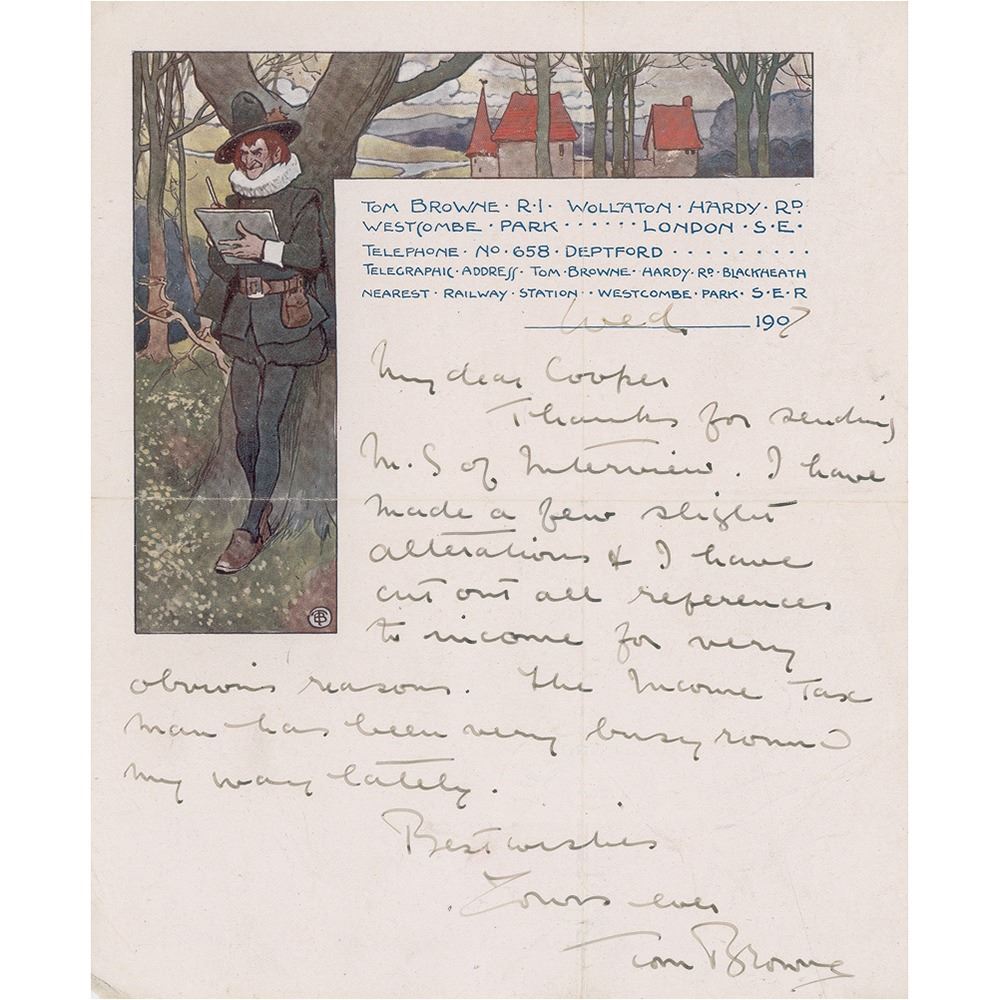 TOM BROWNE · R·I· WOLLATON · HARDY · RD
WESTCOMBE · PARK · · · · · · LONDON · S·E·
TELEPHONE · NO · 658 · DEPTFORD · · · · · · · · ·
TELEGRAPHIC · ADDRESS · TOM · BROWNE · HARDY · RD · BLACKHEATH
NEAREST · RAILWAY · STATION · · WESTCOMBE · PARK · S·E·R
Wed. 1907
My dear Cooper
Thanks for sending
M.S of Interview. I have
made a few slight
alterations & I have
cut out all references
to income for very
obvious reasons. The Income Tax
man has been very busy round
my way lately.
Best wishes
Yours ever
Tom Browne
TB